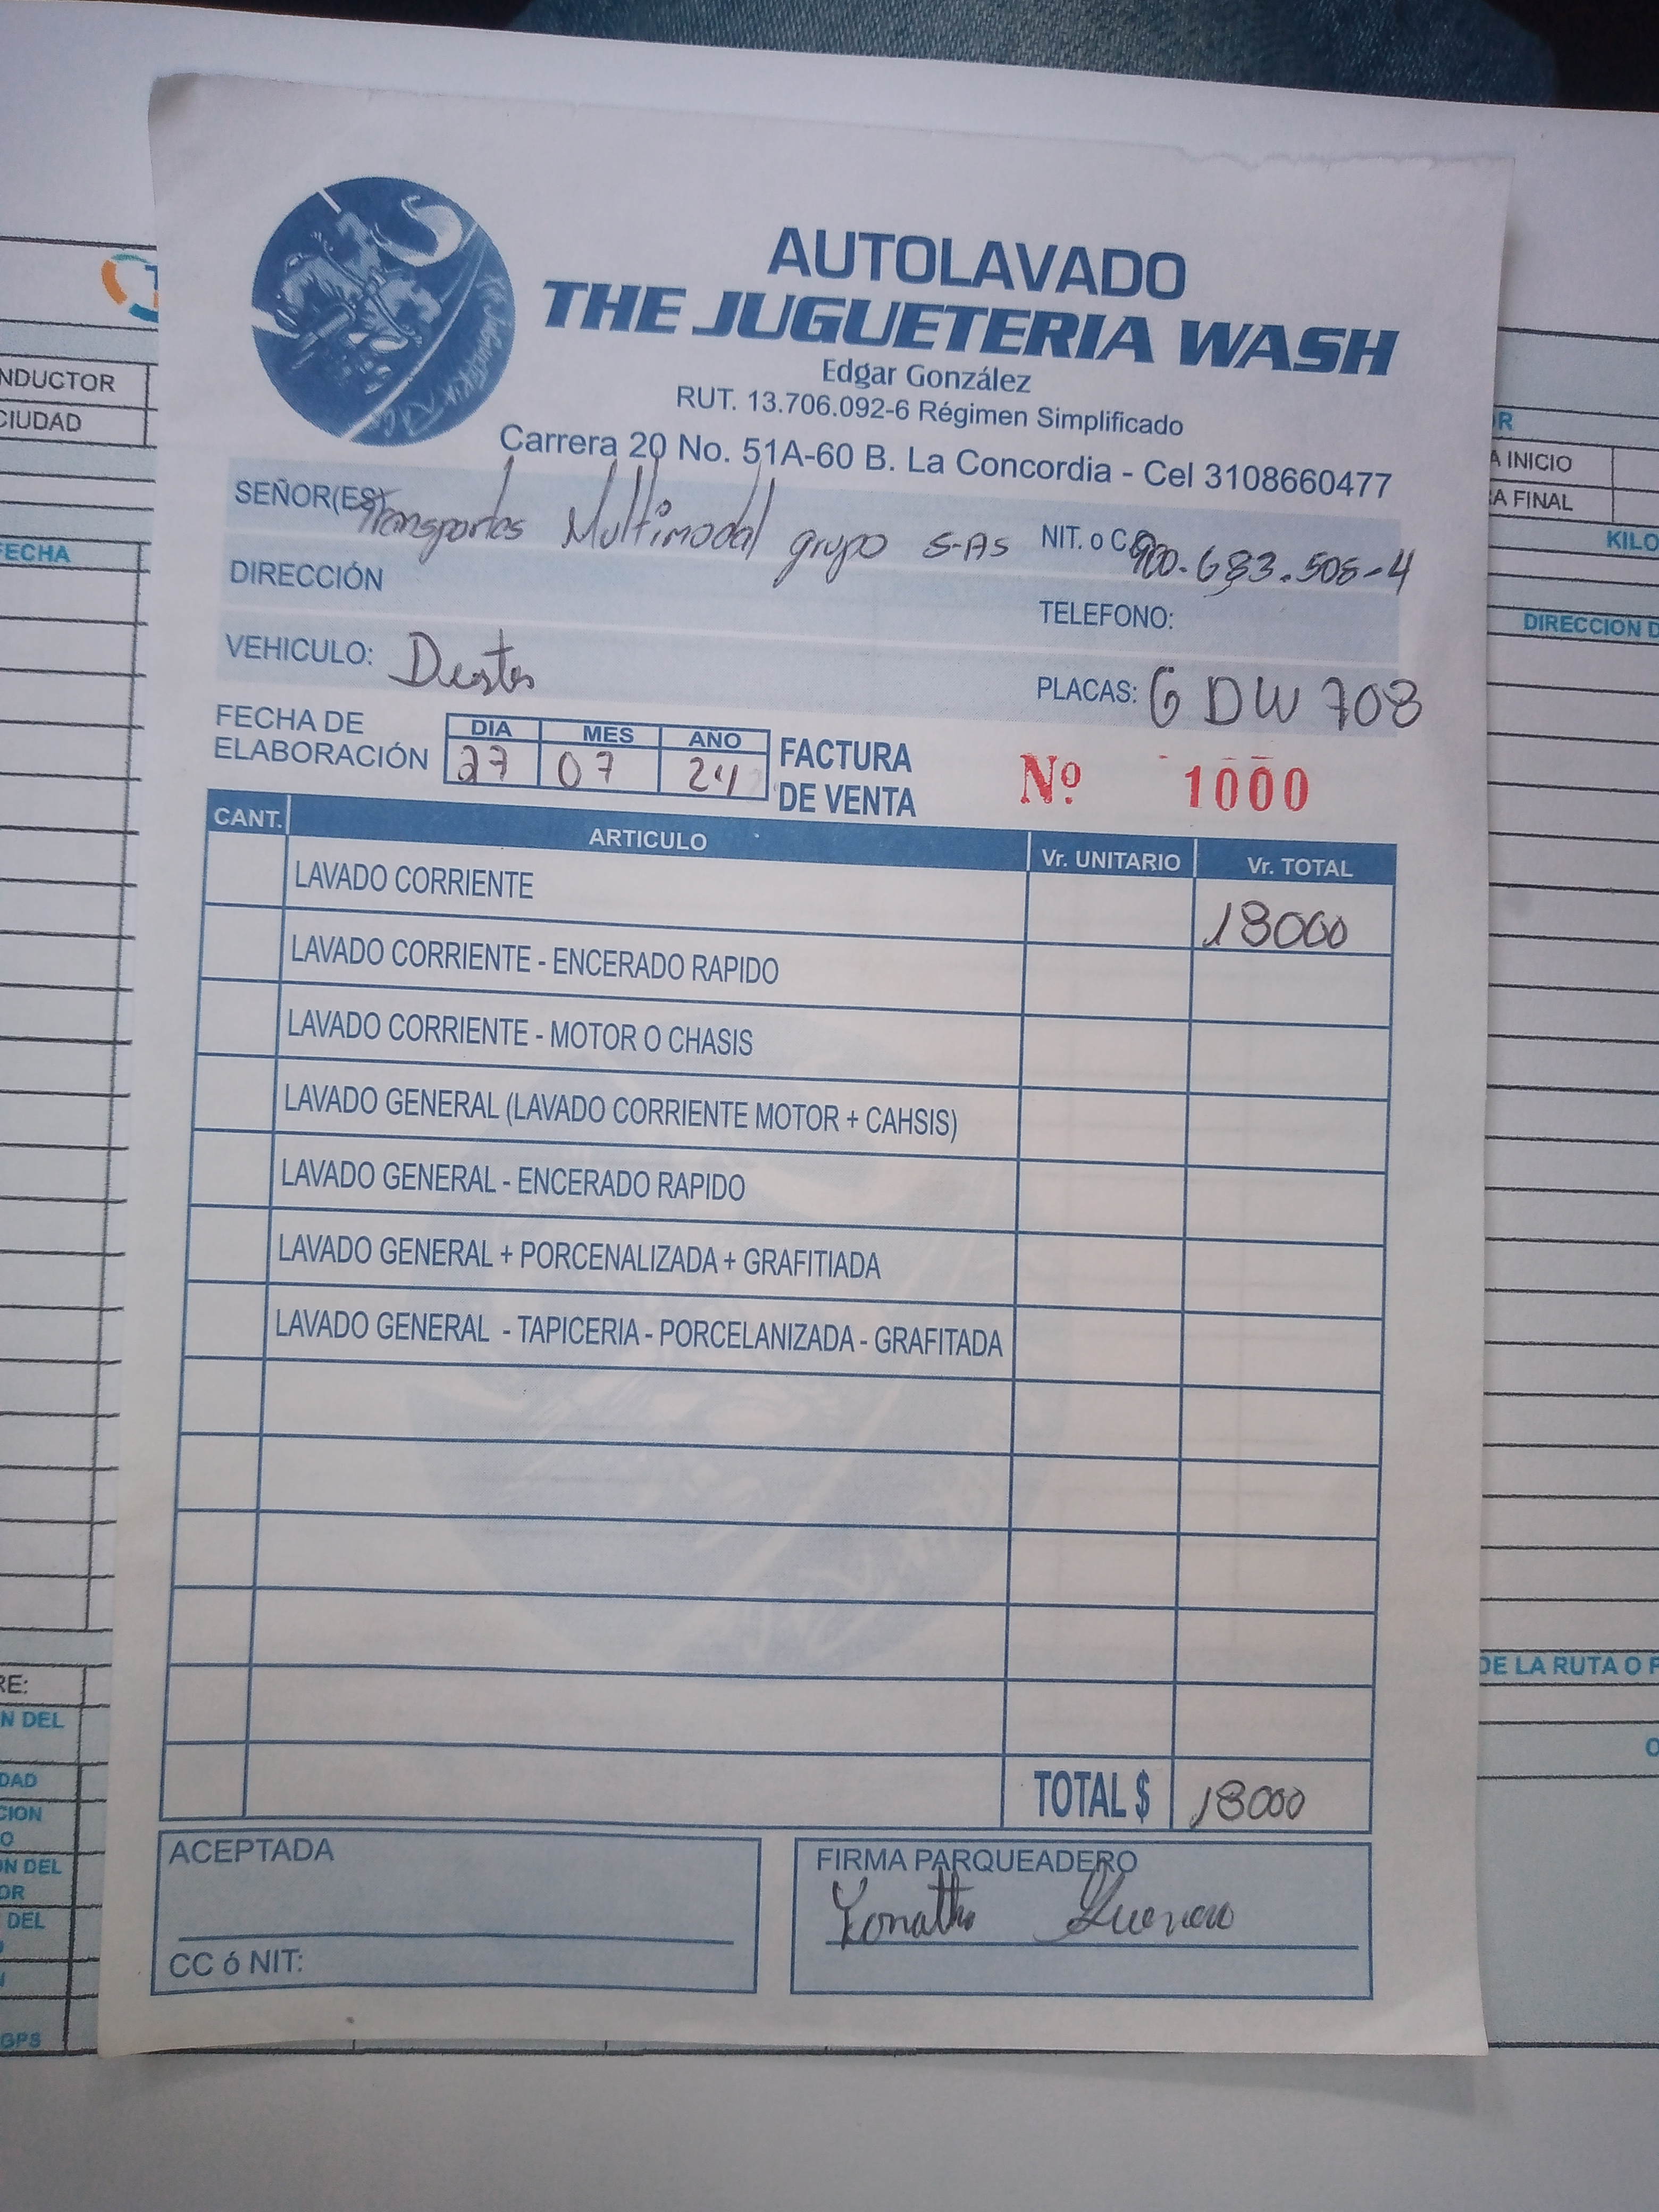 AUTOLAVADO
THE JUGUETERIA WASH
Edgar González
RUT. 13.706.092-6 Régimen Simplificado
Carrera 20 No. 51A-60 B. La Concordia - Cel 3108660477
SEÑOR(ES) Transportes Multimodal grupo S-AS NIT. o C.C. 900.683.508-4
DIRECCIÓN
TELEFONO:
VEHICULO: PLACAS: GDW 708
FECHA DE ELABORACIÓN
DIA MES AÑO
27 07 24
FACTURA DE VENTA Nº 1000
CANT. ARTICULO Vr. UNITARIO Vr. TOTAL
LAVADO CORRIENTE 18000
LAVADO CORRIENTE - ENCERADO RAPIDO
LAVADO CORRIENTE - MOTOR O CHASIS
LAVADO GENERAL (LAVADO CORRIENTE MOTOR + CAHSIS)
LAVADO GENERAL - ENCERADO RAPIDO
LAVADO GENERAL + PORCENALIZADA + GRAFITIADA
LAVADO GENERAL - TAPICERIA - PORCELANIZADA - GRAFITADA
TOTAL $ 18000
ACEPTADA
CC ó NIT:
FIRMA PARQUEADERO
NDUCTOR
CIUDAD
FECHA
A INICIO
A FINAL
KILO
DIRECCION D
DE LA RUTA O
RE:
N DEL
DAD
CION
O
ON DEL
OR
DEL
GPS